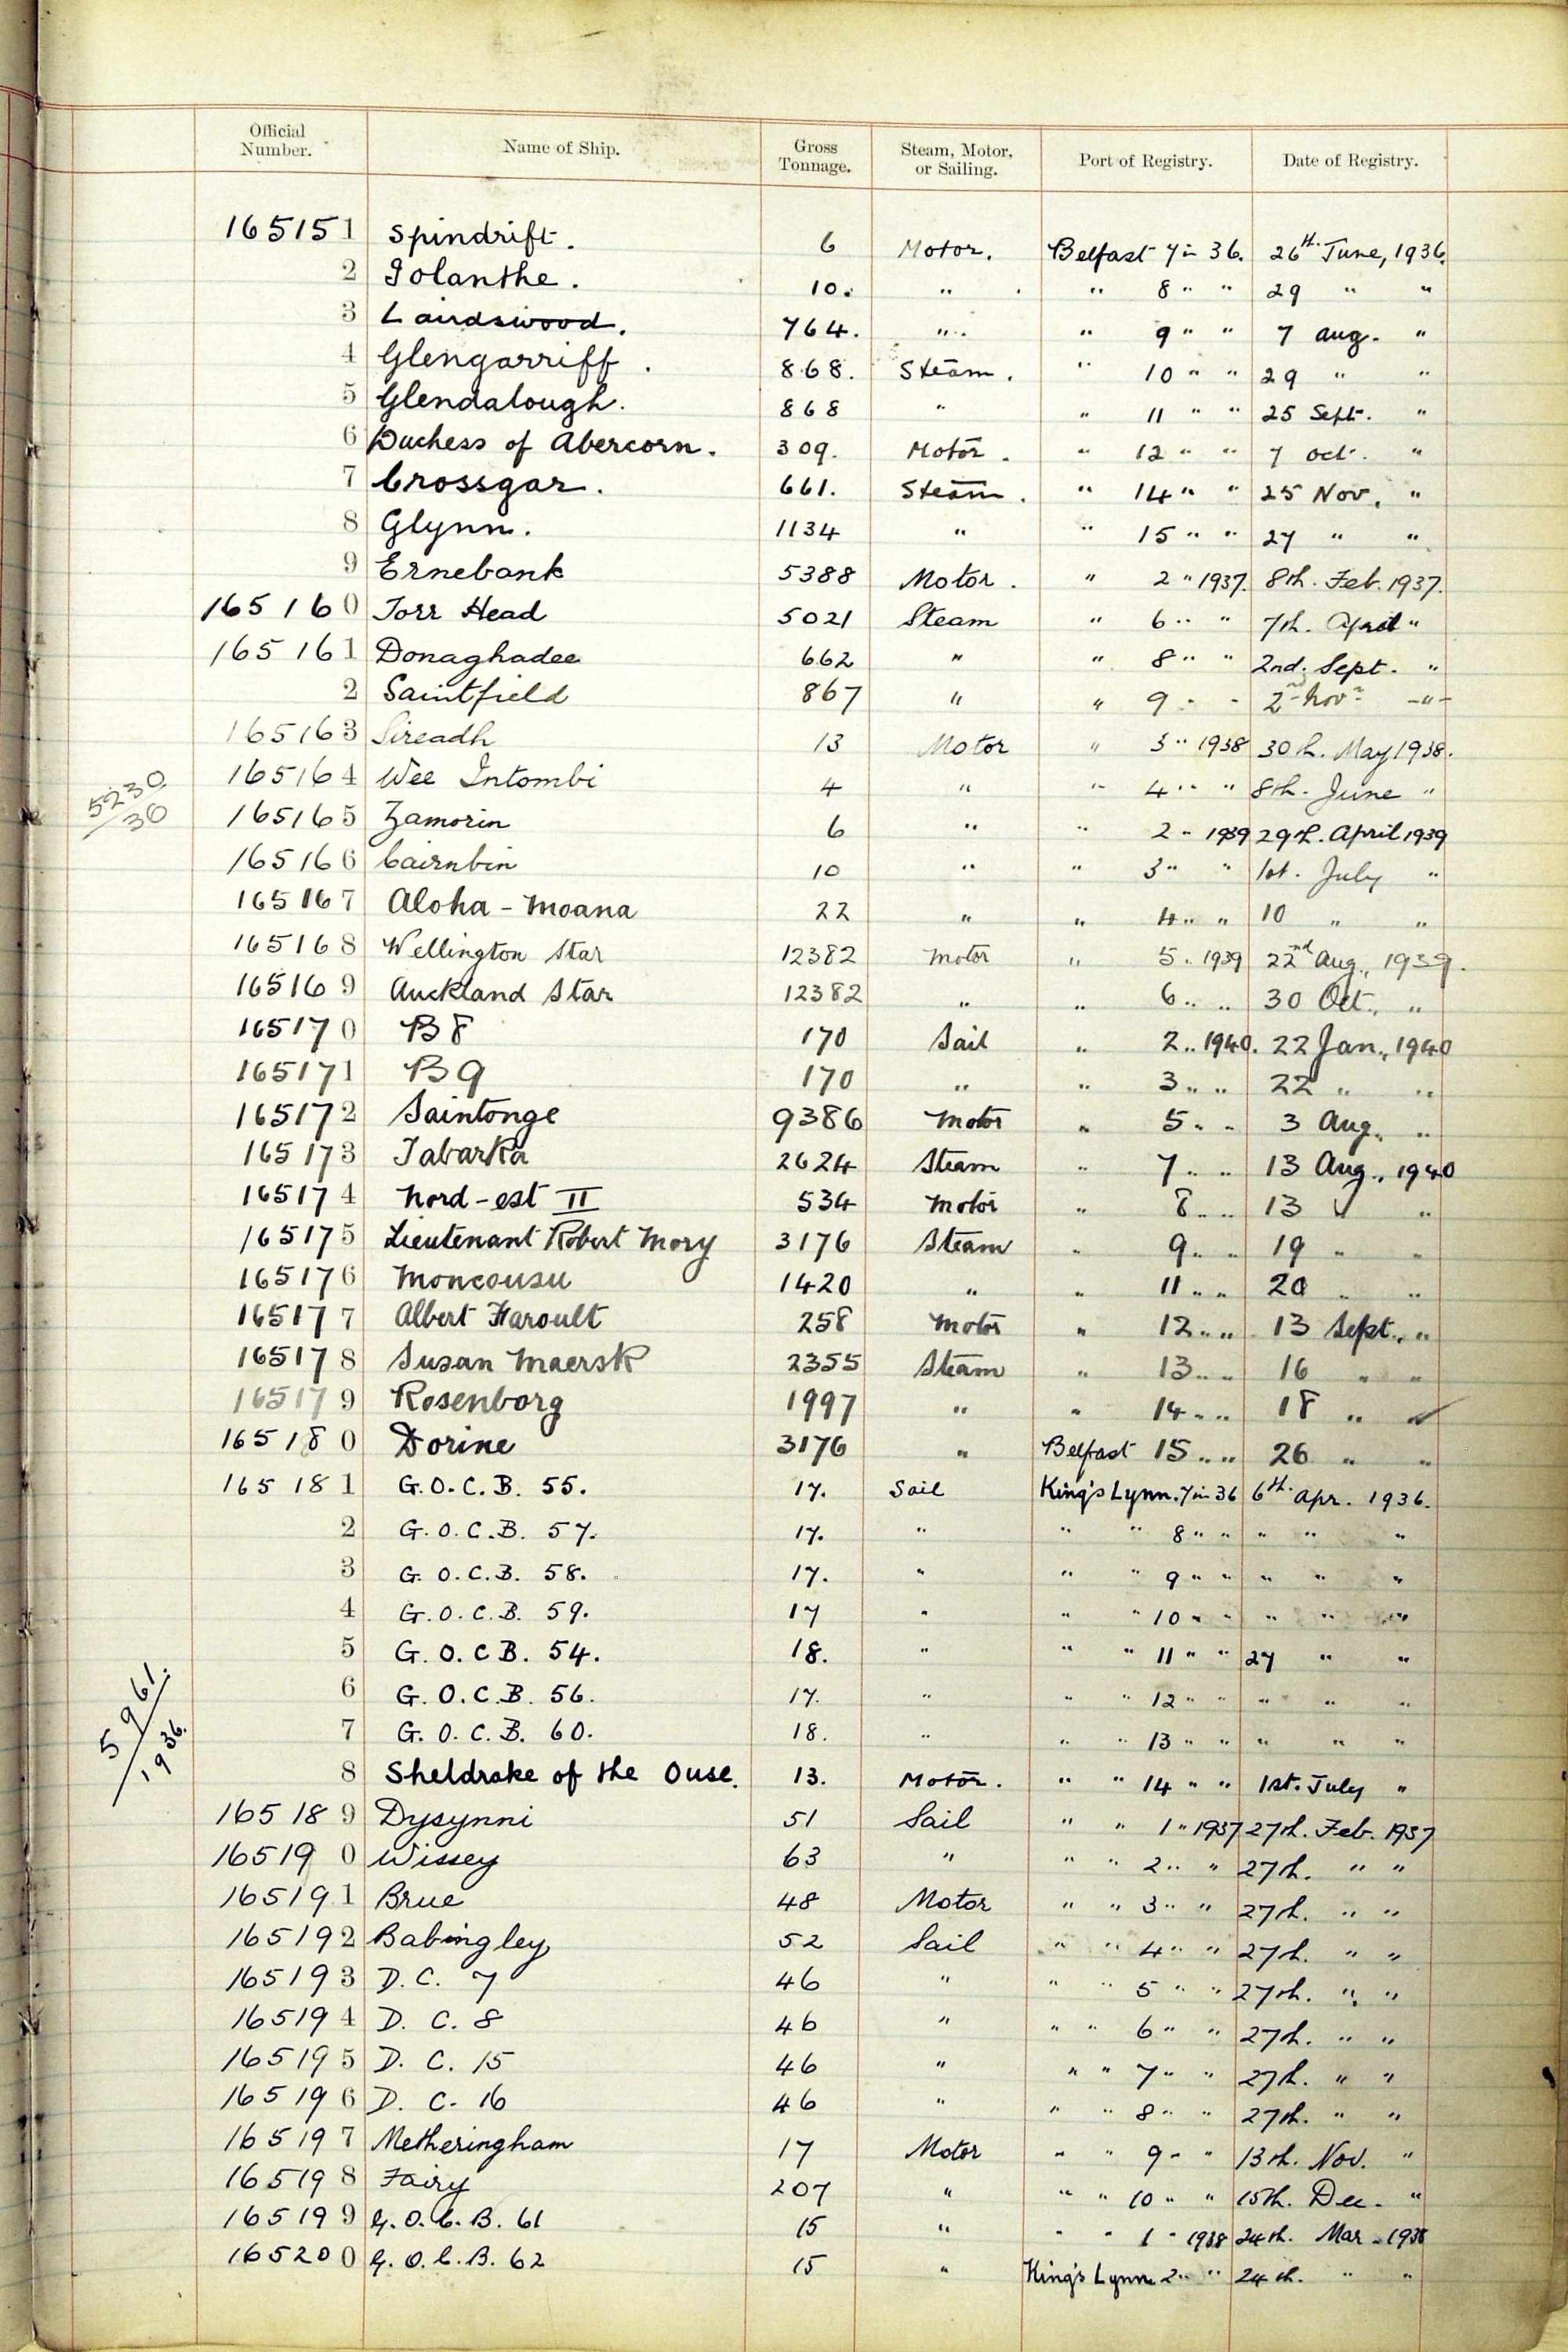 Official Number. Name of Ship. Gross Tonnage. Steam, Motor, or Sailing. Port of Registry. Date of Registry.
165151 Spindrift. 6 Motor. Belfast 7 in 36. 26th. June, 1936.
2 Iolanthe. 10. " " 8 " " 29 " "
3 Lairdswood. 764. " " 9 " " 7 Aug. "
4 Glengarriff. 868. Steam. " 10 " " 29 " "
5 Glendalough. 868 " " 11 " " 25 Sept. "
6 Duchess of Abercorn. 309. Motor. " 12 " " 7 Oct. "
7 Crossgar. 661. Steam. " 14 " " 25 Nov. "
8 Glynn. 1134 " " 15 " " 27 " "
9 Ernebank 5388 Motor. " 2 " 1937. 8th. Feb. 1937.
165160 Torr Head 5021 Steam " 6 " " 7th. April "
165161 Donaghadee 662 " " 8 " " 2nd. Sept. "
2 Saintfield 867 " " 9 " " 2nd Novr -"-
165163 Sireadh 13 Motor " 3 " 1938 30th. May 1938.
5230/36
165164 Wee Intombi 4 " " 4 " " 8th. June "
165165 Zamorin 6 " " 2 " 1939 29th. April 1939
165166 Cairnbin 10 " " 3 " " 1st. July "
165167 Aloha-Moana 22 " " 4 " " 10 " "
165168 Wellington Star 12382 Motor " 5 " 1939 22nd Aug., 1939.
165169 Auckland Star 12382 " " 6 " " 30 Oct., "
165170 B 8 170 Sail " 2 " 1940. 22 Jan., 1940
165171 B 9 170 " " 3 " " 22 " "
165172 Saintonge 9386 Motor " 5 " " 3 Aug. "
165173 Tabarka 2624 Steam " 7 " " 13 Aug., 1940
165174 Nord-est II 534 Motor " 8 " " 13 " "
165175 Lieutenant Robert Mory 3176 Steam " 9 " " 19 " "
165176 Moncousu 1420 " " 11 " " 20 " "
165177 Albert Faroult 258 Motor " 12 " " 13 Sept., "
165178 Susan Maersk 2355 Steam " 13 " " 16 " "
165179 Rosenborg 1997 " " 14 " " 18 " "
165180 Dorine 3176 " Belfast 15 " " 26 " "
165181 G.O.C.B. 55. 17. Sail King's Lynn. 7 in 36 6th. Apr. 1936.
2 G.O.C.B. 57. 17. " " " 8 " " " " "
3 G.O.C.B. 58. 17. " " " 9 " " " " "
4 G.O.C.B. 59. 17 " " " 10 " " " " "
5 G.O.C.B. 54. 18. " " " 11 " " 27 " "
6 G.O.C.B. 56. 17. " " " 12 " " " " "
7 G.O.C.B. 60. 18. " " " 13 " " " " "
5961./1936.
8 Sheldrake of the Ouse. 13. Motor. " " 14 " " 1st. July "
165189 Dysynni 51 Sail " " 1 " 1937 27th. Feb. 1937
165190 Wissey 63 " " " 2 " " 27th. " "
165191 Brue 48 Motor " " 3 " " 27th. " "
165192 Babingley 52 Sail " " 4 " " 27th. " "
165193 D.C. 7 46 " " " 5 " " 27th. " "
165194 D.C. 8 46 " " " 6 " " 27th. " "
165195 D.C. 15 46 " " " 7 " " 27th. " "
165196 D.C. 16 46 " " " 8 " " 27th. " "
165197 Metheringham 17 Motor " " 9 " " 13th. Nov. "
165198 Fairy 207 " " " 10 " " 15th. Dec. "
165199 G.O.C.B. 61 15 " " " 1 " 1938 24th. Mar. 1938
165200 G.O.C.B. 62 15 " King's Lynn 2 " " 24th. " "